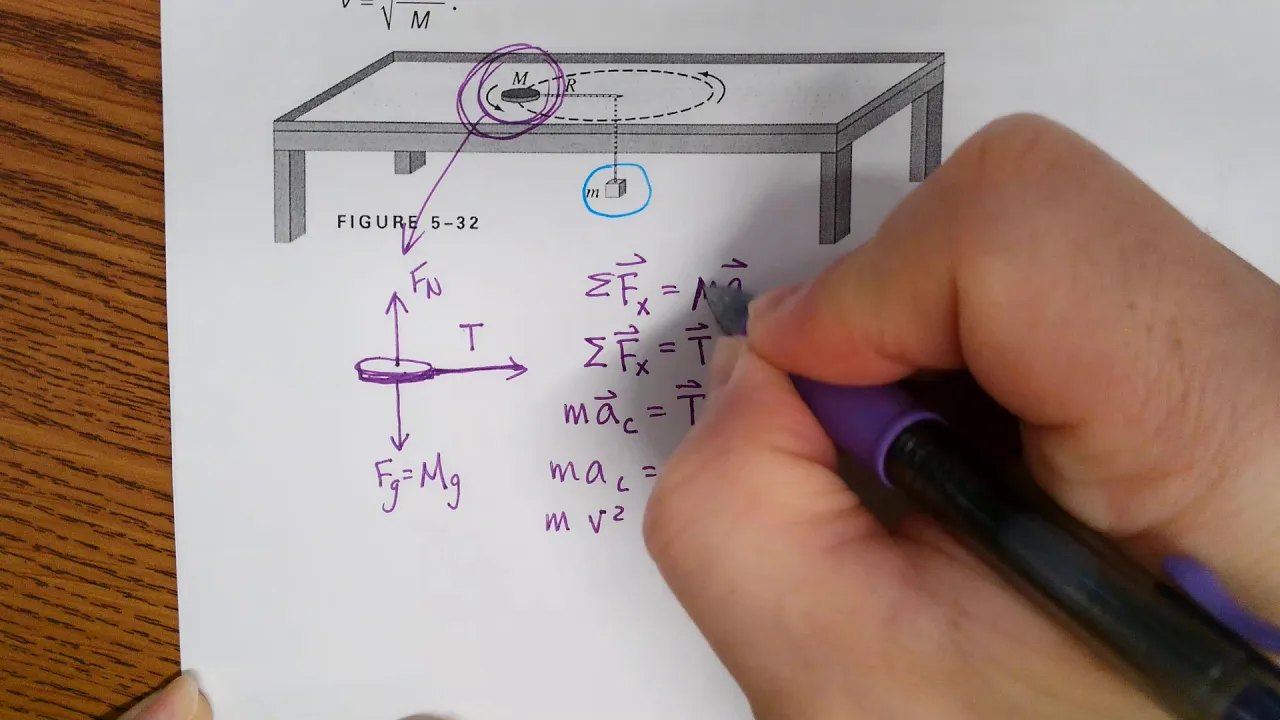 V = √ M .
M
R
m
FIGURE 5-32
F_N
T
F_g = Mg
ΣF⃗_x = Ma⃗
ΣF⃗_x = T⃗
ma⃗_c = T⃗
ma_c =
m v²